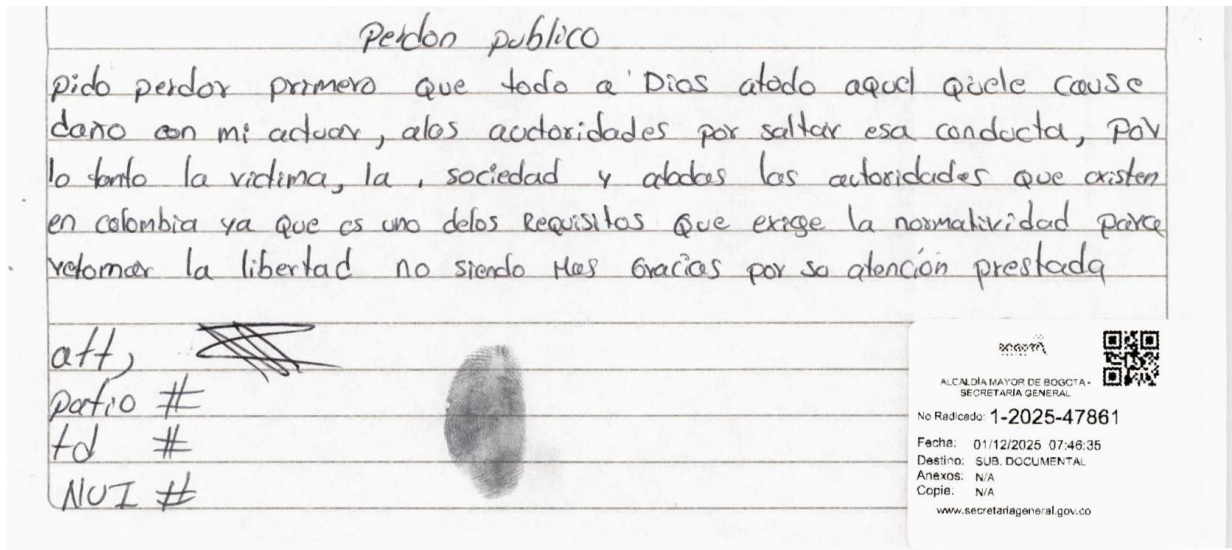 Perdon publico
Pido perdor primero que todo a Dios atodo aquel quele cause
daño con mi actuar, alas auctoridades por saltar esa conducta, Por
lo tanto la victima, la , sociedad y atodas las autoridades que existen
en colombia ya que es uno delos Requisitos que exige la normatividad para
retomar la libertad no siendo Mas Gracias por su atención prestada
att,
patio #
td #
NUI #
BOGOTÁ
ALCALDÍA MAYOR DE BOGOTA -
SECRETARÍA GENERAL
No Radicado: 1-2025-47861
Fecha: 01/12/2025 07:46:35
Destino: SUB. DOCUMENTAL
Anexos: N/A
Copia: N/A
www.secretariageneral.gov.co